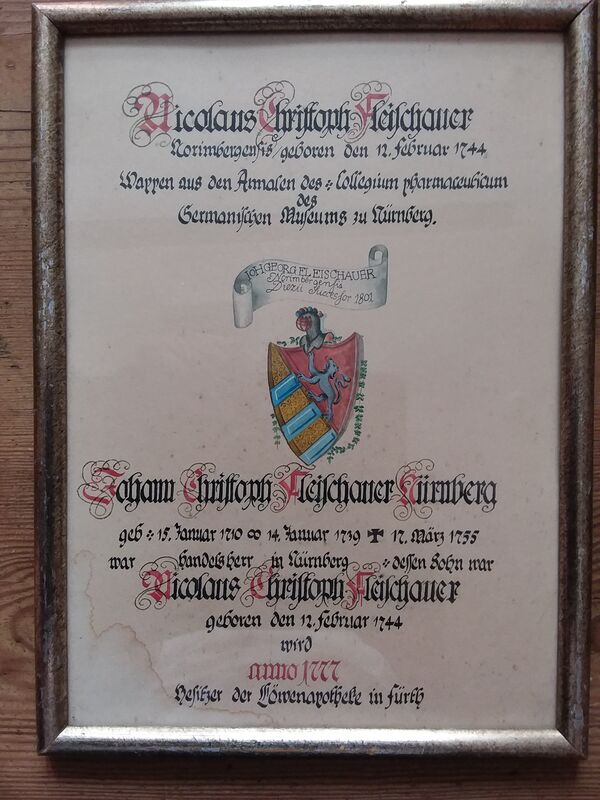 Nicolaus Christoph Fleischauer
Norimbergensis geboren den 12. Februar 1744
Wappen aus den Annalen des : Collegium pharmaceuticum
des
Germanischen Museums zu Nürnberg.
JOH GEORG FLEISCHAUER
Norimbergensis
Successor 1801
Johann Christoph Fleischauer Nürnberg
geb : 15. Januar 1710 ∞ 14. Januar 1739 ✠ 17. März 1755
war Handelsherr in Nürnberg : dessen Sohn war
Nicolaus Christoph Fleischauer
geboren den 12. Februar 1744
wird
anno 1777
Besitzer der Löwenapotheke in Fürth